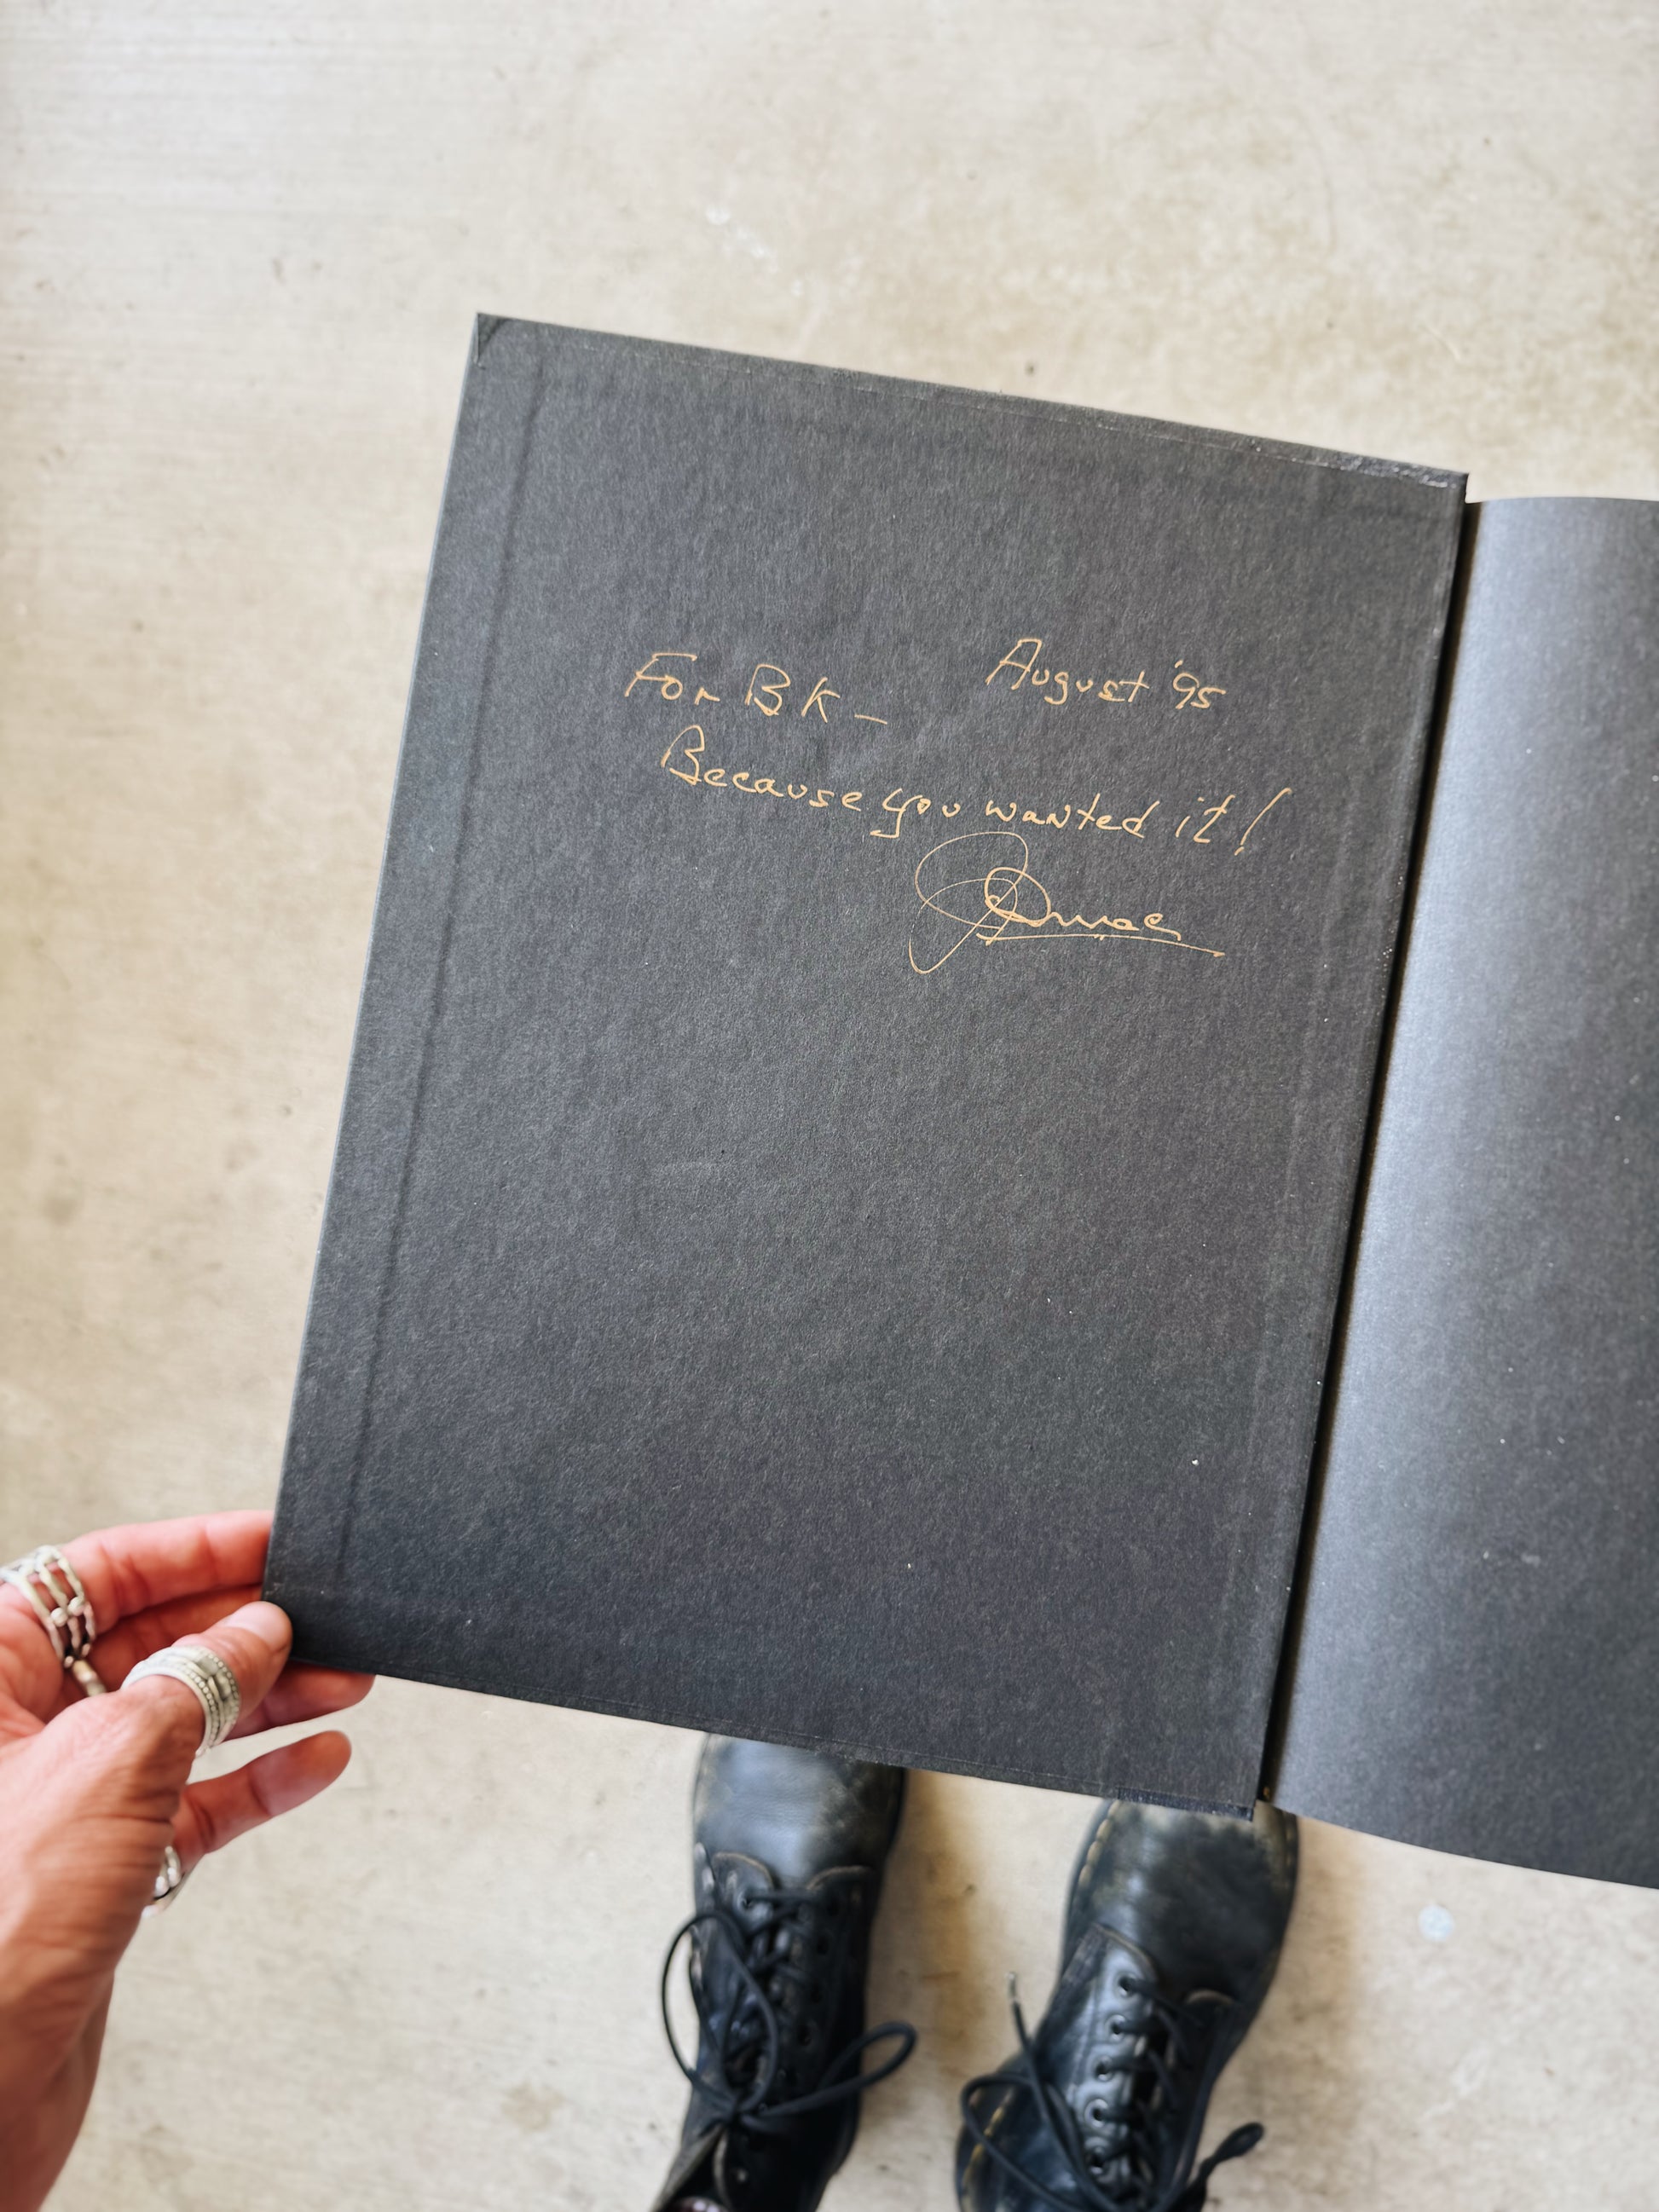 August '95
For BK –
Because you wanted it!